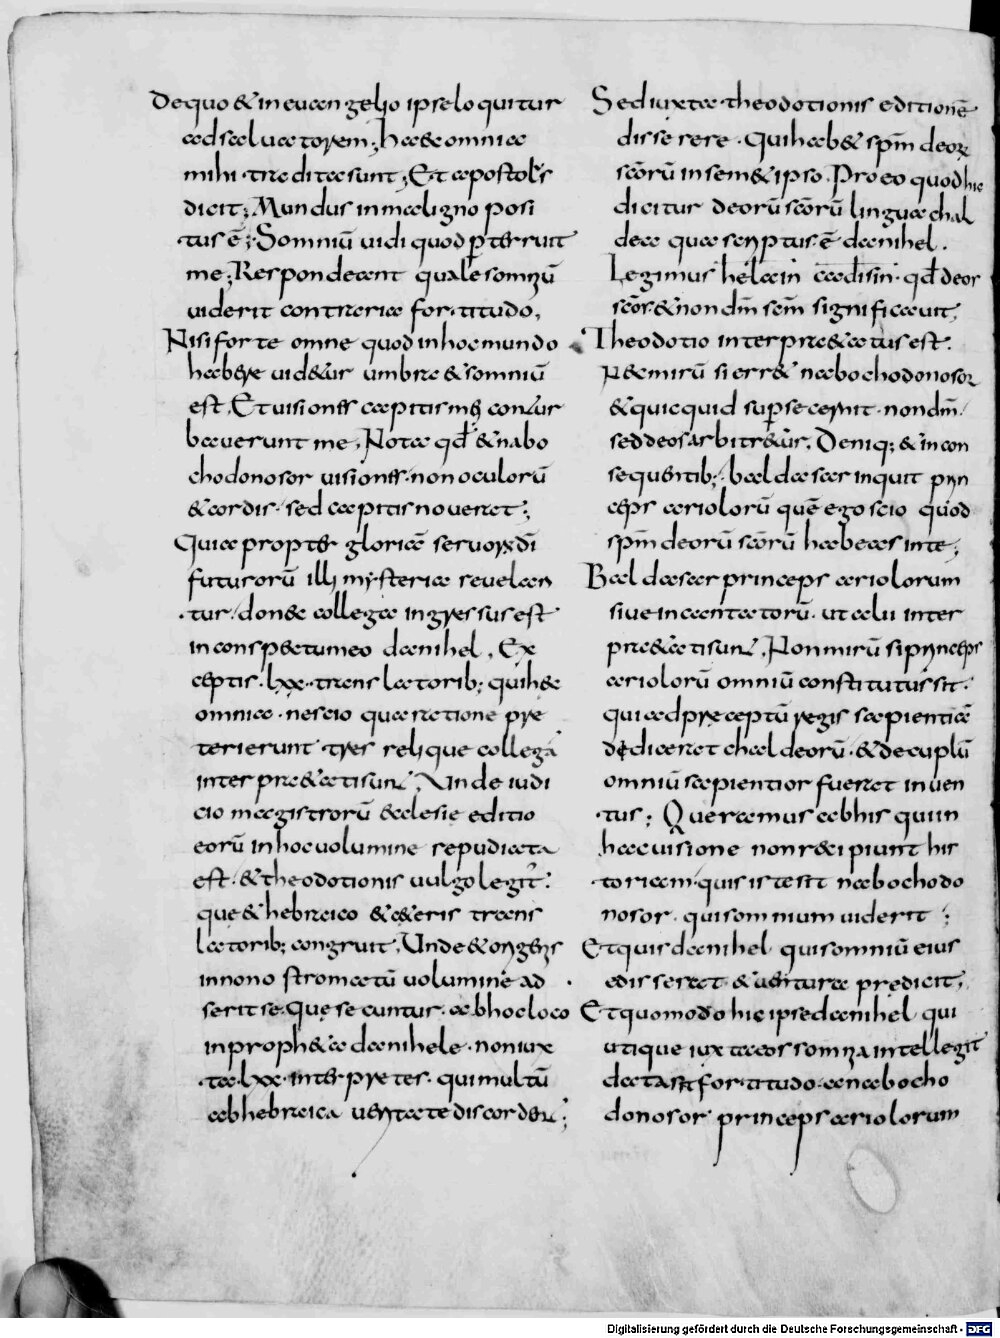 De quo & in euangelio ipse loquitur
ad saluatorem; Haec omnia
mihi tradita sunt; Et apostolus
dicit; Mundus in maligno posi
tus ē; Somniū uidi quod ꝑterruit
me; Respondeant quale somniū
uiderit contraria fortitudo,
Nisi forte omne quod in hoc mundo
habere uid&ur umbra & somniū
est, Et uisiones capitis mei contur
bauerunt me, Nota qđ & nabo
chodonosor uisiones. non oculorū
& cordis. sed capitis nouerat;
Quia propter gloriā seruorū dī
futurorū illi mysteria reuelan
tur. donec collega ingressus est
in conspectu meo danihel, Ex
ceptis. lxx. translatorib; qui hęc
omnia. nescio qua ratione pre
terierunt tres relique collegā
interpretati sunt, Unde iudi
cio magistrorū ecclesie editio
eorū in hoc uolumine repudiata
est. & theodotionis uulgo legit̄.
que & hebraico & c&eris trans
latorib; congruit, Unde & origenes
in nono stromatū uolumine ad
serit se. Que secuntur. ab hoc loco
in proph&a danihele. non iux
ta. lxx. interpretes. qui multū
ab hebraica ueritate discordant;
Sed iuxta theodotionis editionē
disserere. Qui hab& spm̄ deorum
scōrū in sem&ipso. Pro eo quod hic
dicitur deorū scōrū lingua chal
dea qua scriptus ē danihel.
Legimus helain cadisin. qđ deos
scōs & non dm̄ scm̄ significauit,
Theodotio interpr&atus est.
Nec mirū si err& nabochodonosor
& quicquid sup se cernit. non dm̄.
sed deos arbitr&ur, Deniq; & in con
sequentib; baldasar inquit prin
ceps ariolorū quē ego scio quod
spm̄ deorū scōrū habeas in te;
Baldasar princeps ariolorum
siue incantatorū. ut alii inter
pr&ati sunt, Non mirū si princeps
ariolorū omniū constitutus sit.
qui ad preceptū regis sapientiā
didicerat chaldeorū. & decuplū
omniū sapientior fuerat inuen
tus; Queramus ab his qui in
hac uisione non r&ipiunt his
toriam. quis iste sit nabochodo
nosor. qui somnium uiderit;
Et quis danihel qui somniū eius
edisserat & uentura predicit,
Et quomodo hic ipse danihel qui
utique iuxta eos somnia intellegit
dictas sit fortitudo. a nabocho
donosor princeps ariolorum
Digitalisierung gefördert durch die Deutsche Forschungsgemeinschaft - DFG